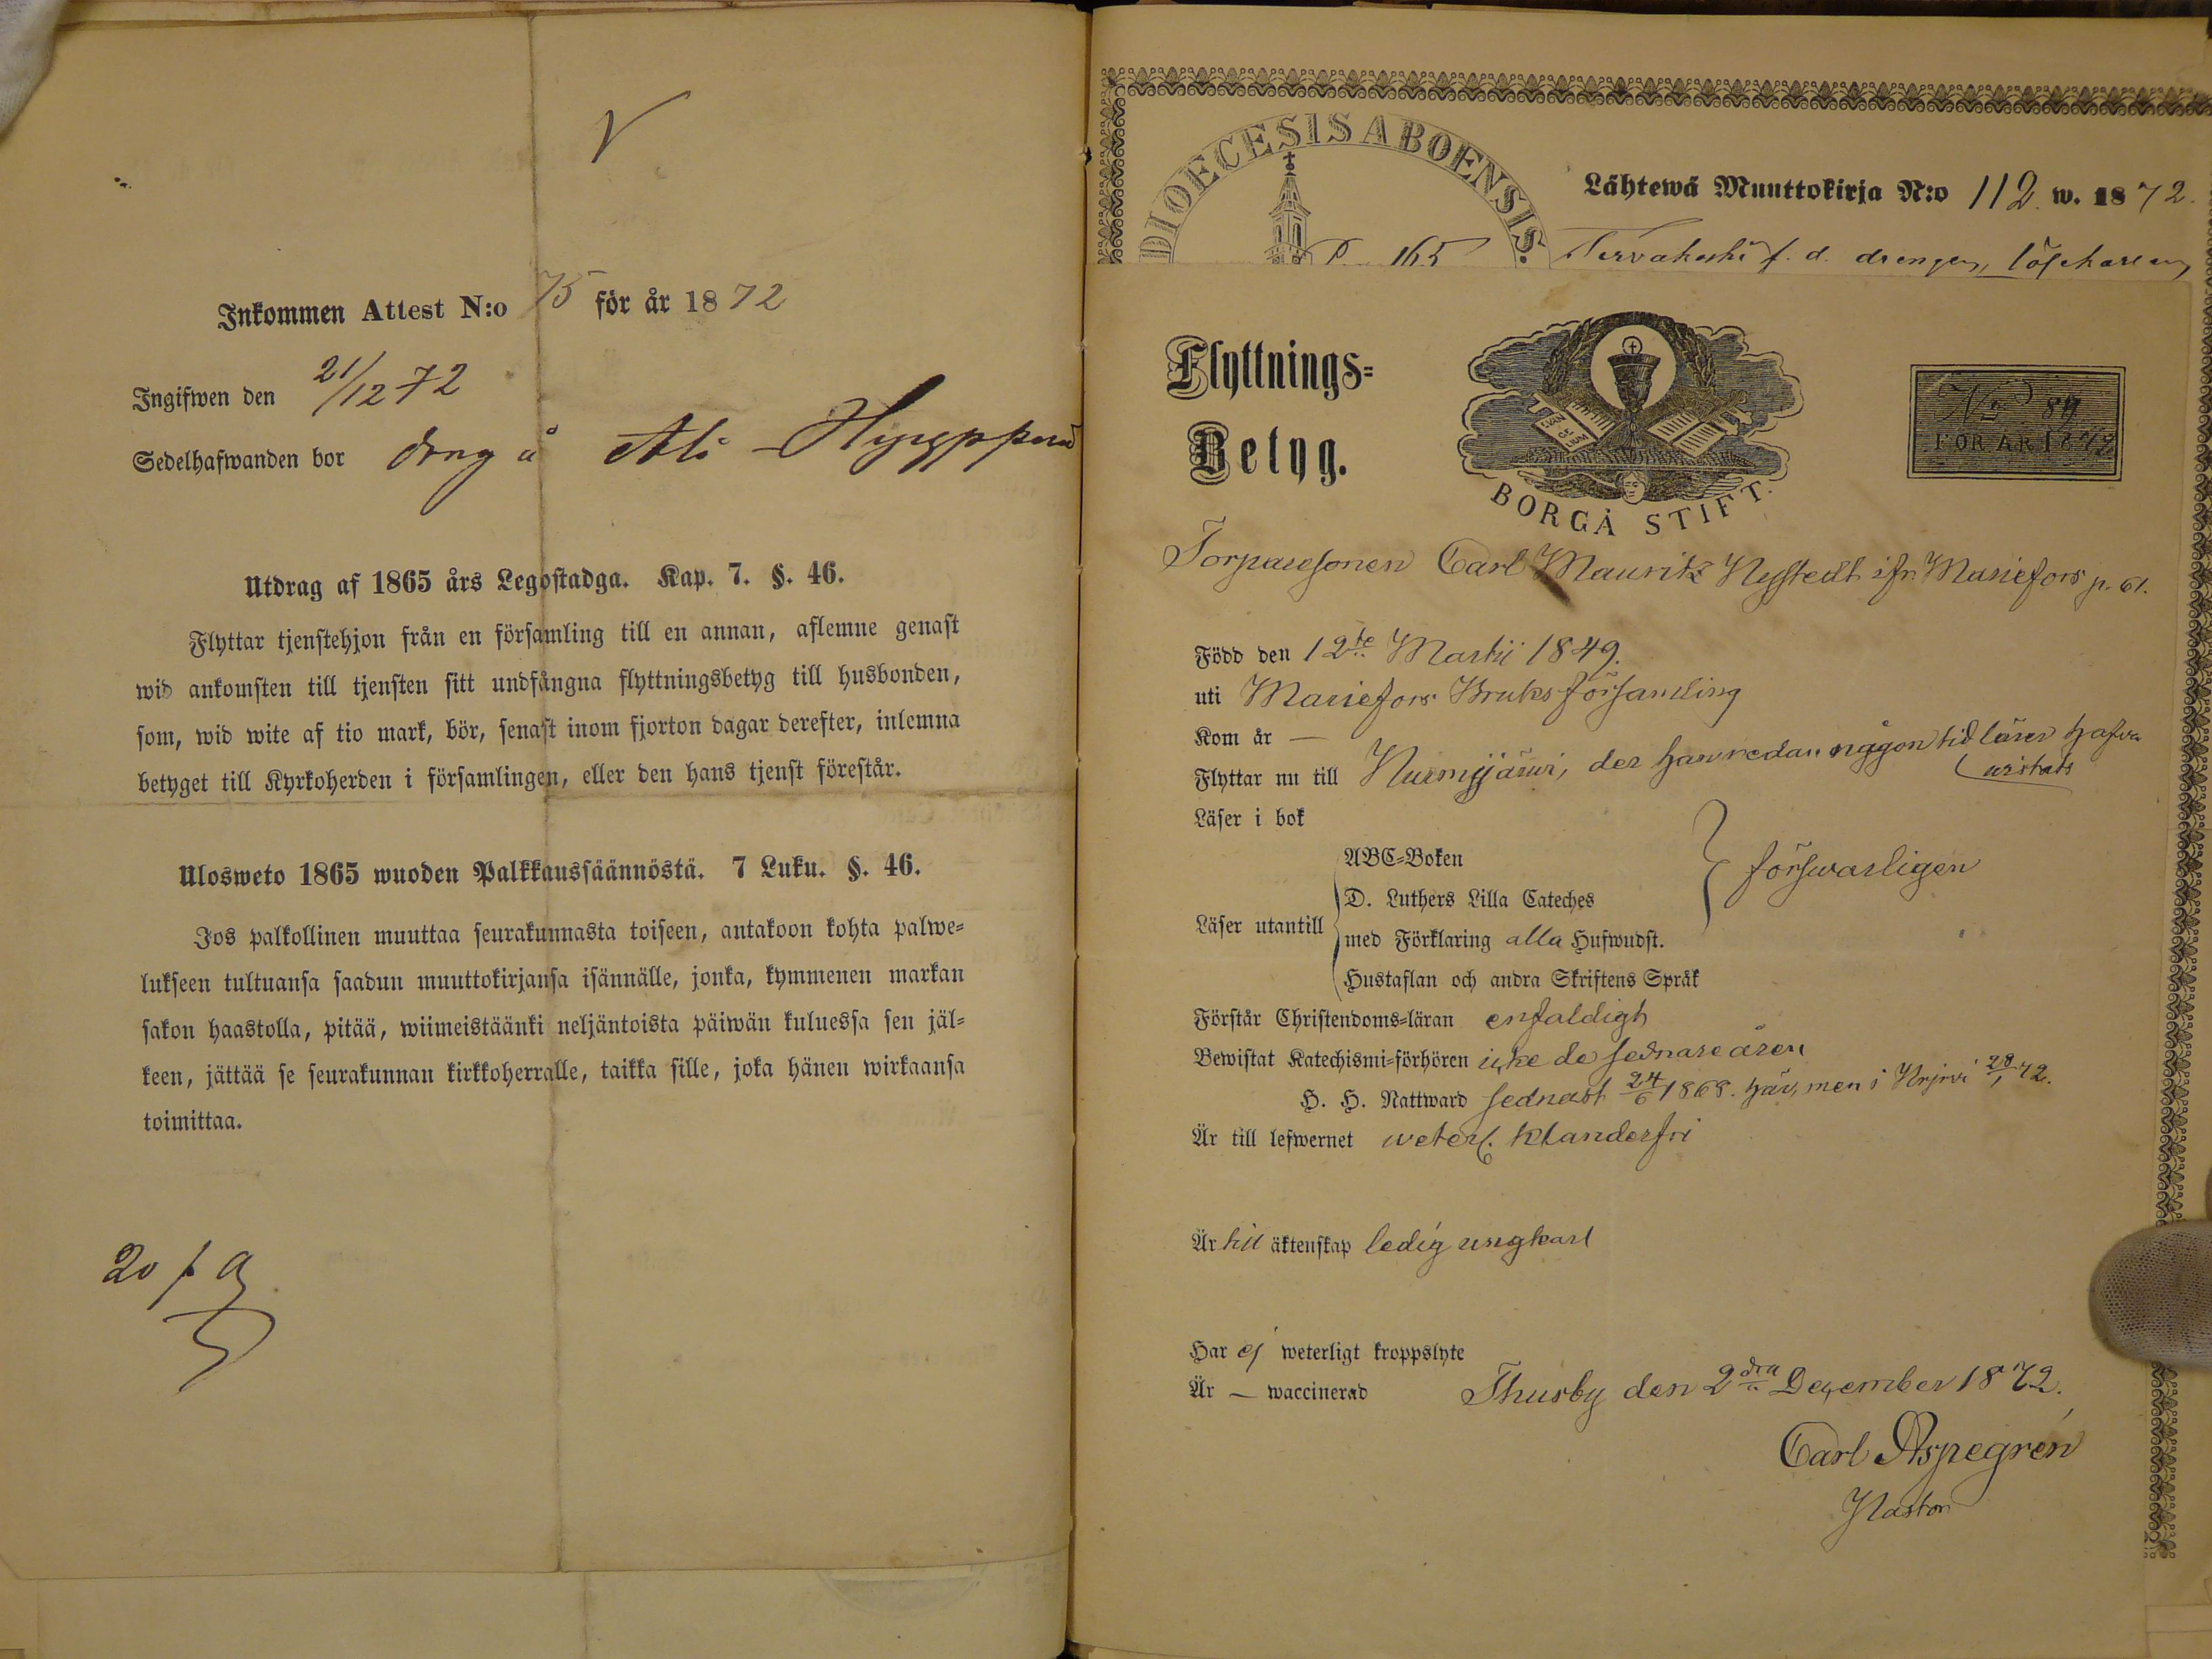 Inkommen Attest N:o 75 för år 1872
Ingifwen den 21/12 72
Sedelhafwanden bor dräng å Ali
Utdrag af 1865 års Legostadga. Kap. 7. §. 46.
Flyttar tjenstehjon från en församling till en annan, aflemne genast
wid ankomsten till tjensten sitt undfångna flyttningsbetyg till husbonden,
som, wid wite af tio mark, bör, senast inom fjorton dagar derefter, inlemna
betyget till Kyrkoherden i församlingen, eller den hans tjenst förestår.
Ulosweto 1865 wuoden Palkkaussäännöstä. 7 Luku. §. 46.
Jos palkollinen muuttaa seurakunnasta toiseen, antakoon kohta palwe=
lukseen tultuansa saadun muuttokirjansa isännälle, jonka, kymmenen markan
sakon haastolla, pitää, wiimeistäänki neljäntoista päiwän kuluessa sen jäl=
keen, jättää se seurakunnan kirkkoherralle, taikka sille, joka hänen wirkaansa
toimittaa.
DIOECESIS ABOENSIS.
Lähtewä Muuttokirja N:o 112 w. 1872.
165
Tervakoski f. d. drengen, löskarlen
Flyttnings=
Betyg.
EVAN
GE
LIUM
BORGÅ STIFT.
No 89
FÖR ÅR 1872
Torparesonen Carl Mauritz Nystedt ifr. Mariefors p. 61.
Född den 12te Martii 1849.
uti Mariefors Bruks församling
Kom år —
Flyttar nu till Nurmijärvi, der han redan någon tid lärer hafva
vistats
Läser i bok
ABC=Boken
D. Luthers Lilla Cateches
Läser utantill
med Förklaring alla Hufwudst.
Hustaflan och andra Skriftens Språk
försvarligen
Förstår Christendoms=läran enfaldigt
Bewistat Katechismi=förhören icke de sednare åren
H. H. Nattward sednast 24/6 1868. här, men i Nrjrvi 28/1 72.
Är till lefwernet veterl. klanderfri
Är till äktenskap ledig ungkarl
Har ej weterligt kroppslyte
Är — waccinerad
Thusby den 2dra December 1872.
Carl Aspegrén
Pastor